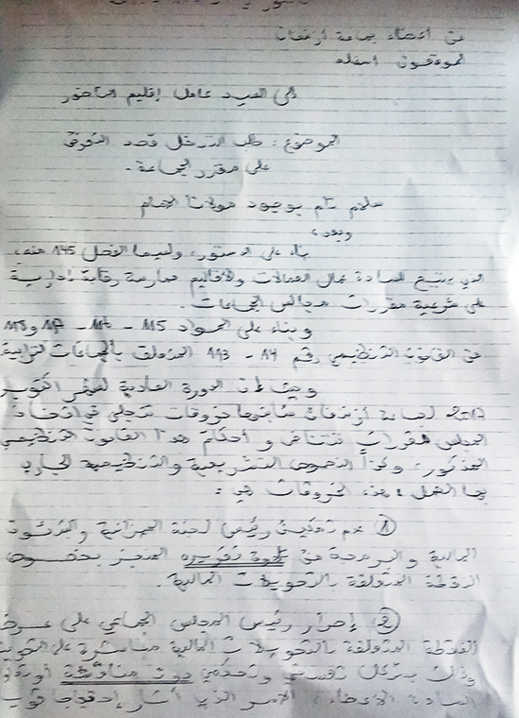 من أعضاء جماعة أزغنغان
الموقعون أسفله
إلى السيد عامل إقليم الناظور
الموضوع: طلب التدخل قصد التعرض
على مقرر الجماعة.
سلام تام بوجود مولانا الإمام
وبعد،
بناء على الدستور، ولاسيما الفصل 145 منه،
الذي يتيح للسادة عمال العمالات والأقاليم ممارسة رقابة إدارية
على شرعية مقررات مجالس الجماعات.
وبناء على المواد 115 - 116 - 117 و118
من القانون التنظيمي رقم 14 - 113 المتعلق بالجماعات الترابية
وحيث أن الدورة العادية لشهر أكتوبر
2017 لجماعة أزغنغان شابتها خروقات تتجلى في اتخاذ
المجلس مقررات تتنافى و أحكام هذا القانون التنظيمي
المذكور، وكذا النصوص التشريعية والتنظيمية الجاري
بها العمل، هذه الخروقات هي:
① عدم تمكين رئيس لجنة الميزانية والشؤون
المالية والبرمجة من تلاوة تقريره المنجز بخصوص
النقطة المتعلقة بالتحويلات المالية.
② إصرار رئيس المجلس الجماعي على عرض
النقطة المتعلقة بالتحويلات المالية مباشرة على التصويت
وذلك بشكل تعسفي وتحكمي دون مناقشة أو
السادة الأعضاء، الأمر الذي أثار